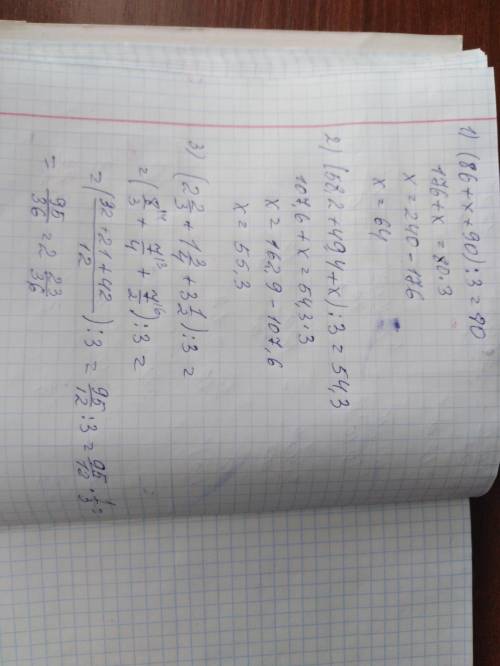 1) (86+x+90):3=90
176+x=80·3
x=240-176
x=64
2) (58,2+49,4+x):3=54,3
107,6+x=54,3·3
x=162,9-107,6
x=55,3
3) (2 2/3 + 1 3/4 + 3 1/2):3=
=(8/3 \4 + 7/4 \3 + 7/2 \6):3=
=((32+21+42)/12):3=95/12:3=95/12·1/3=
=95/36=2 23/36